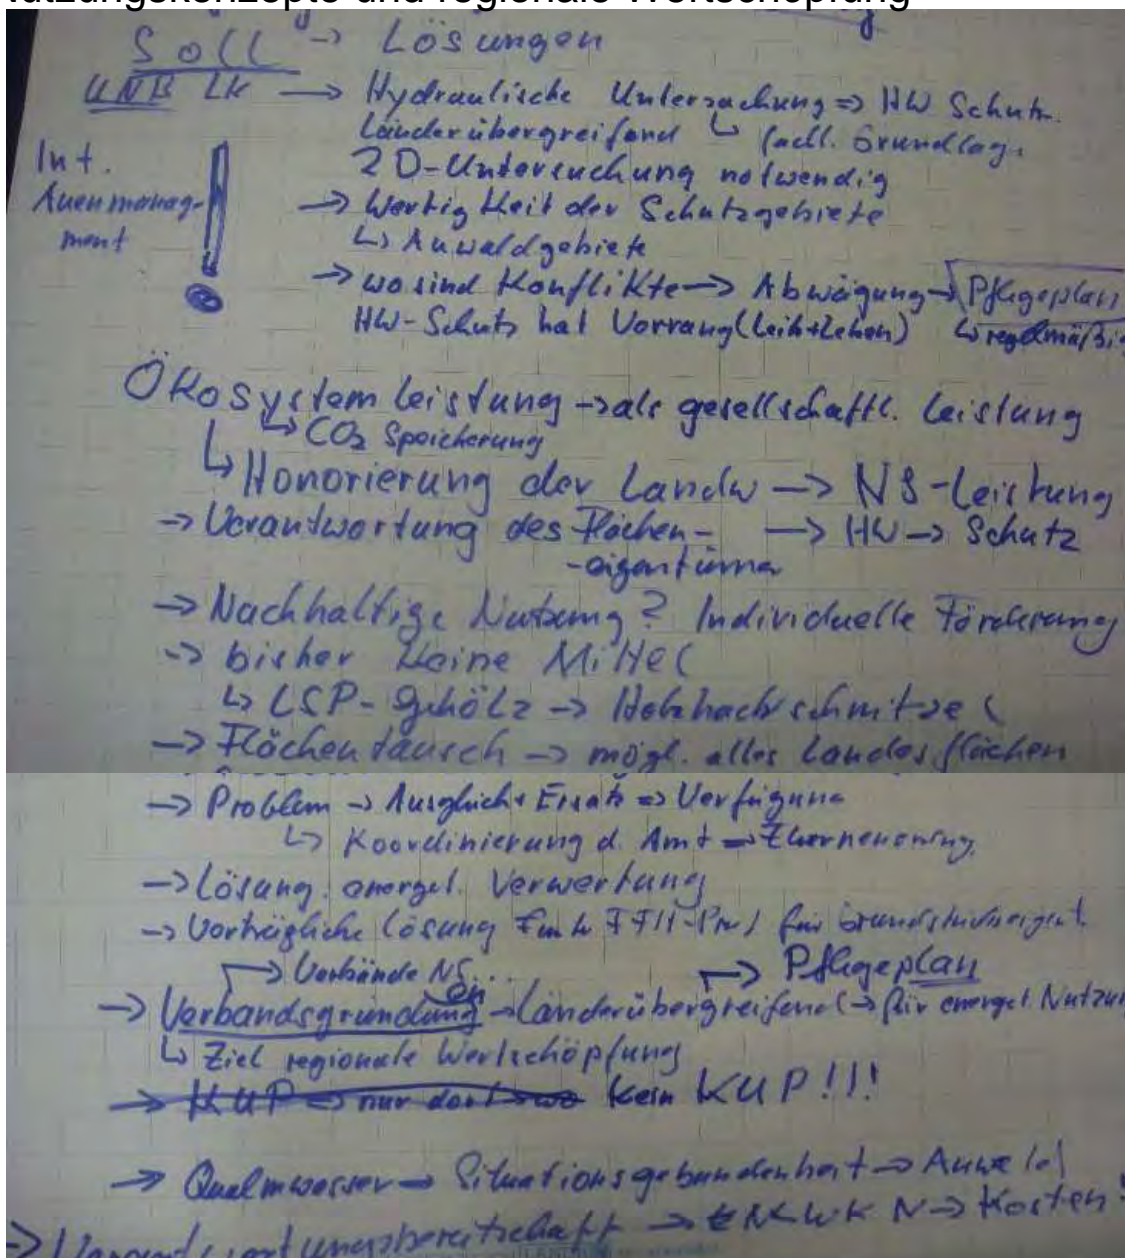 Nutzungskonzepte und regionale Wertschöpfung
Soll → Lösungen
UNB LK → Hydraulische Untersuchung ⇒ HW Schutz
Länderübergreifend ↳ fachl. Grundlag.
2D-Untersuchung notwendig
Int.
Auenmanag-
ment
→ Wertigkeit der Schutzgebiete
↳ Auwaldgebiete
→ wo sind Konflikte → Abwägung → Pflegeplan
HW-Schutz hat Vorrang (Leib+Leben) ↳ regelmäßig
Ökosystemleistung → als gesellschaftl. Leistung
↳ CO2 Speicherung
↳ Honorierung der Landw → NS-Leistung
→ Verantwortung des Flächen- → HW → Schutz
-eigentümer
→ Nachhaltige Nutzung? Individuelle Förderung
→ bisher keine Mittel
↳ LSP-Gehölz → Holzhackschnitzel
→ Flächentausch → mögl. aller Landesflächen
→ Problem → Ausgleich + Ersatz ⇒ Verfügung
↳ Koordinierung d. Amt ⇒
→ Lösung. energet. Verwertung
→ Verträgliche Lösung für
→ Verbände NS... → Pflegeplan
→ Verbandsgründung → Länderübergreifend → für energet. Nutzun
↳ Ziel regionale Wertschöpfung
→ KUP → nur dort wo kein KUP!!!
→ Qualmwasser → Situationsgebundenheit → Auwald
→ → Kosten!